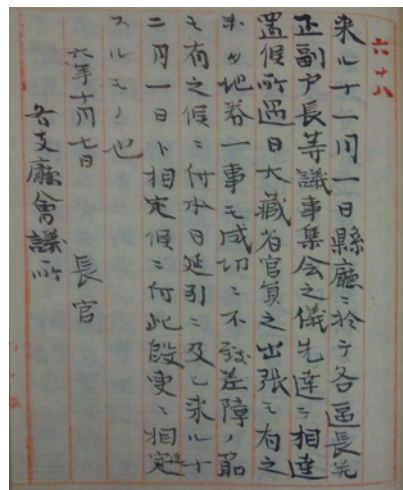 六十八
来ル十一月一日縣廳ニ於テ各區長先
正副戸長等議事集会之儀先達テ相達
置候所過日大藏省官員之出張モ有之
未タ地券一事モ成切ニ不致差障ノ節
モ有之候ニ付本日延引ニ及ヒ来ル十
二月一日ト相定候ニ付此段更ニ相達
スルモノ也
六年十月七日 長官
各支廳會議所